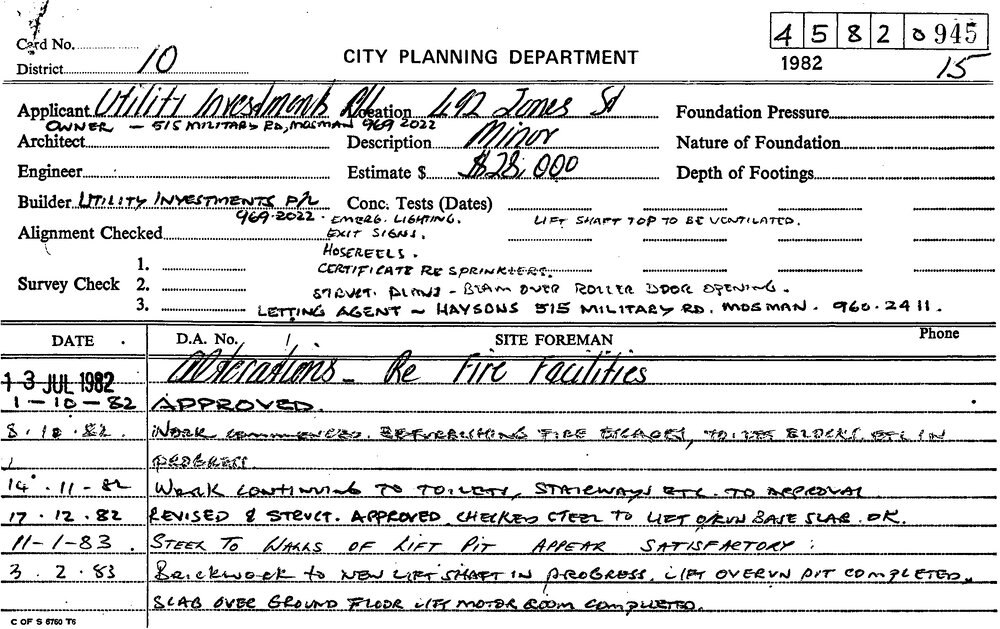 4 5 8 2 0 945
Card No.
District 10
CITY PLANNING DEPARTMENT
1982
15
Applicant Utility Investments P/L Location 492 Jones St Foundation Pressure
OWNER - 515 MILITARY RD, MOSMAN 969 2022
Architect Description Minor Nature of Foundation
Engineer Estimate $ $28,000 Depth of Footings
Builder UTILITY INVESTMENTS P/L Conc. Tests (Dates)
969-2022. EMERG. LIGHTING. LIFT SHAFT TOP TO BE VENTILATED.
Alignment Checked EXIT SIGNS.
HOSEREELS.
1. CERTIFICATE RE SPRINKLERS.
Survey Check 2. STRUCT. PLANS - BEAM OVER ROLLER DOOR OPENING.
3. LETTING AGENT ~ HAYSONS 515 MILITARY RD. MOSMAN. 960.2411.
DATE D.A. No. SITE FOREMAN Phone
13 JUL 1982 Alterations - Re Fire Facilities
1-10-82 APPROVED.
8.10.82. WORK COMMENCED. REFURBISHING FIRE ESCAPES, TOILET BLOCKS. ETC IN
PROGRESS.
14.11-82 WORK CONTINUING TO TOILETS, STAIRWAYS ETC. TO APPROVAL.
17.12.82 REVISED & STRUCT. APPROVED. CHECKED STEEL TO LIFT O/RUN BASE SLAB. OK.
11-1-83. STEEL TO WALLS OF LIFT PIT APPEAR SATISFACTORY:
3.2.83 BRICKWORK TO NEW LIFT SHAFT IN PROGRESS. LIFT OVERUN PIT COMPLETED.
SLAB OVER GROUND FLOOR LIFT MOTOR ROOM COMPLETED.
C OF S 6760 T6